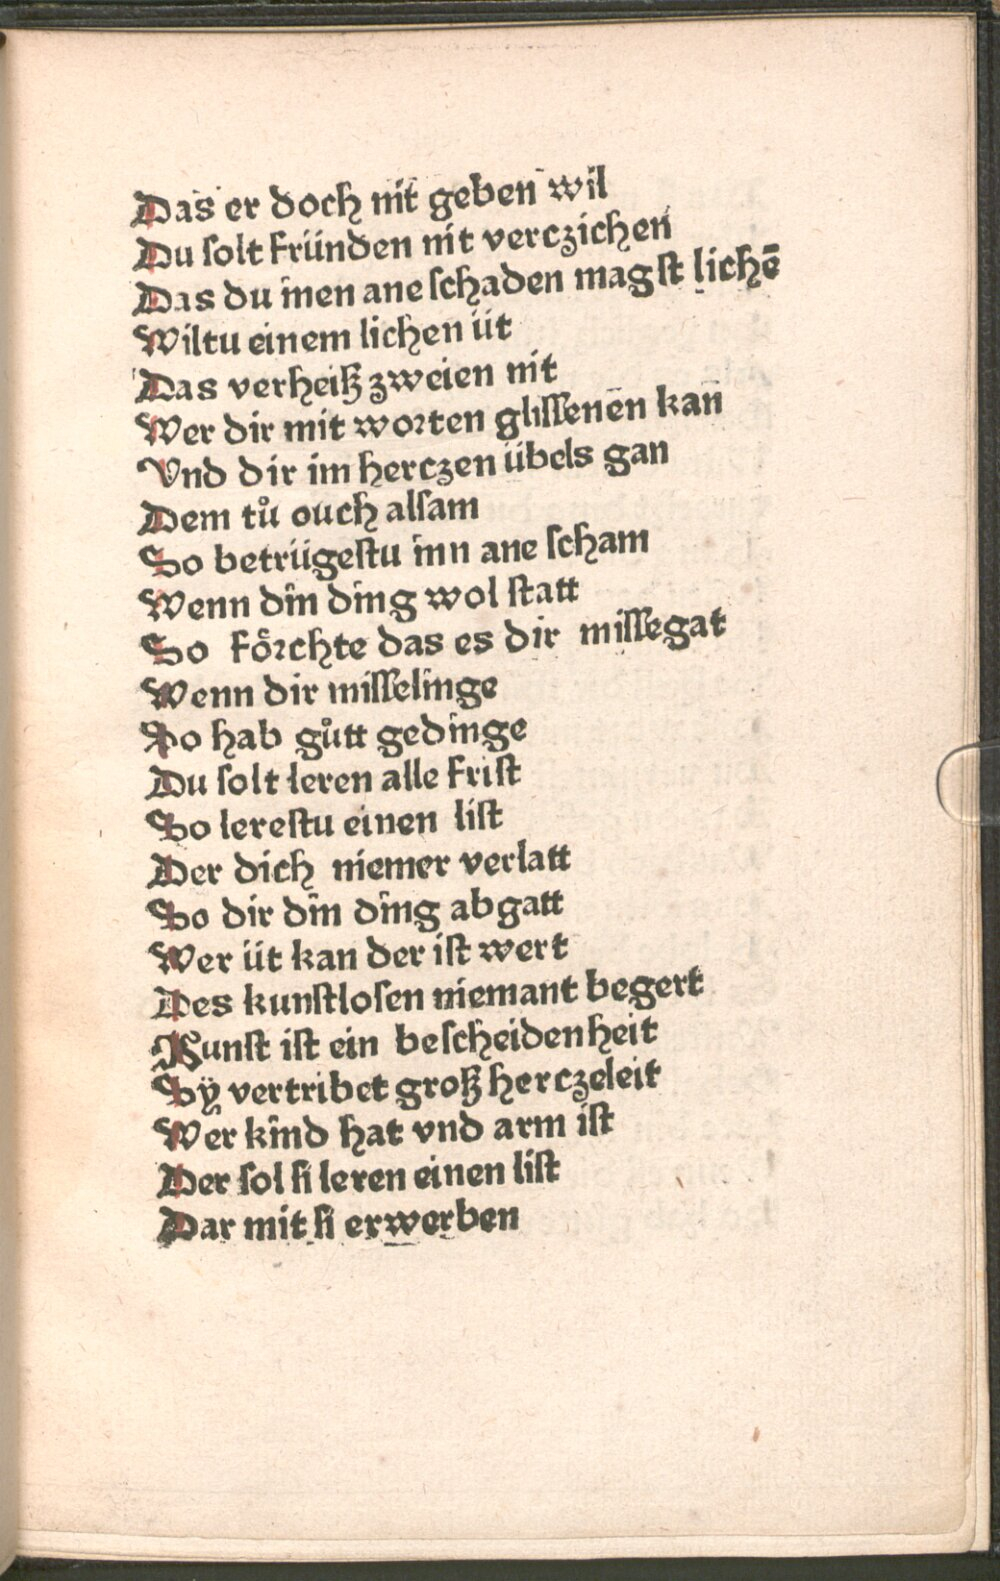 Das er doch nit geben wil
Du ſolt fründen nit verczichen
Das du inen ane ſchaden magſt lichē
Wiltu einem lichen üt
Das verheiß zweien nit
Wer dir mit worten gliſſenēn kan̄
Vnd dir im herczen übels gan
Dem tů ouch alſam
So betrügeſtu inn ane ſcham
Wenn din ding wol ſtatt
So foͤrchte das es dir miſſegat
Wenn dir miſſelinge
So hab gůtt gedinge
Du ſolt leren alle friſt
So lereſtu einen liſt
Der dich niemer verlatt
So dir din ding abgatt
Wer üt kan der iſt wert
Des kunſtloſen niemant begert
Kunſt iſt ein beſcheidenheit
Sÿ vertribet groß herczeleit
Wer kind hat vnd arm iſt
Der ſol ſi leren einen liſt
Dar mit ſi erwerben